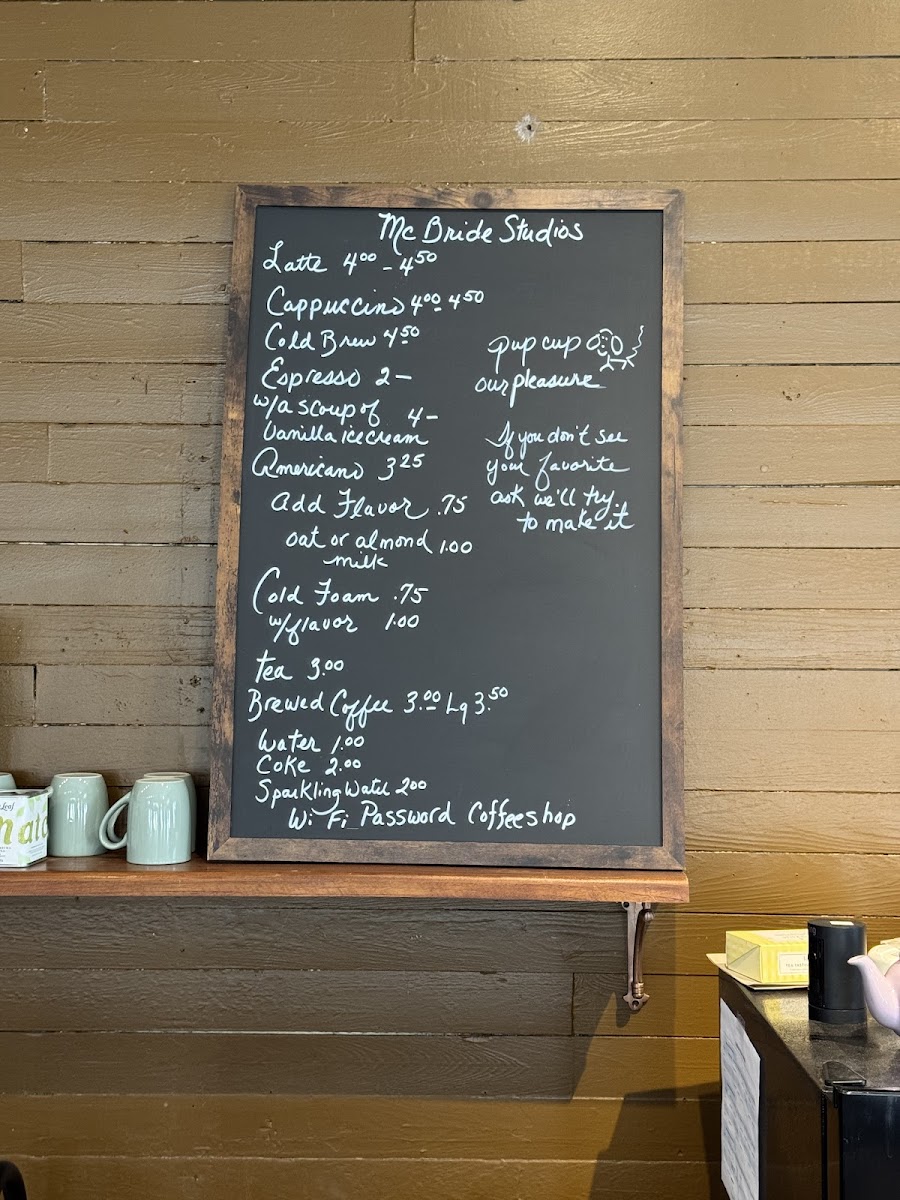 Mc Bride Studios
Latte 4.00 - 4.50
Cappuccino 4.00 4.50
Cold Brew 4.50
Espresso 2 —
w/a scoup of
Vanilla ice cream 4 —
Americano 3.25
add Flavor .75
oat or almond
milk 1.00
Cold Foam .75
w/flavor 1.00
tea 3.00
Brewed Coffee 3.00 Lg 3.50
Water 1.00
Coke 2.00
Sparkling Water 2.00
Wi Fi Password Coffeeshop
pup cup
our pleasure
If you don't see
your favorite
ask we'll try
to make it